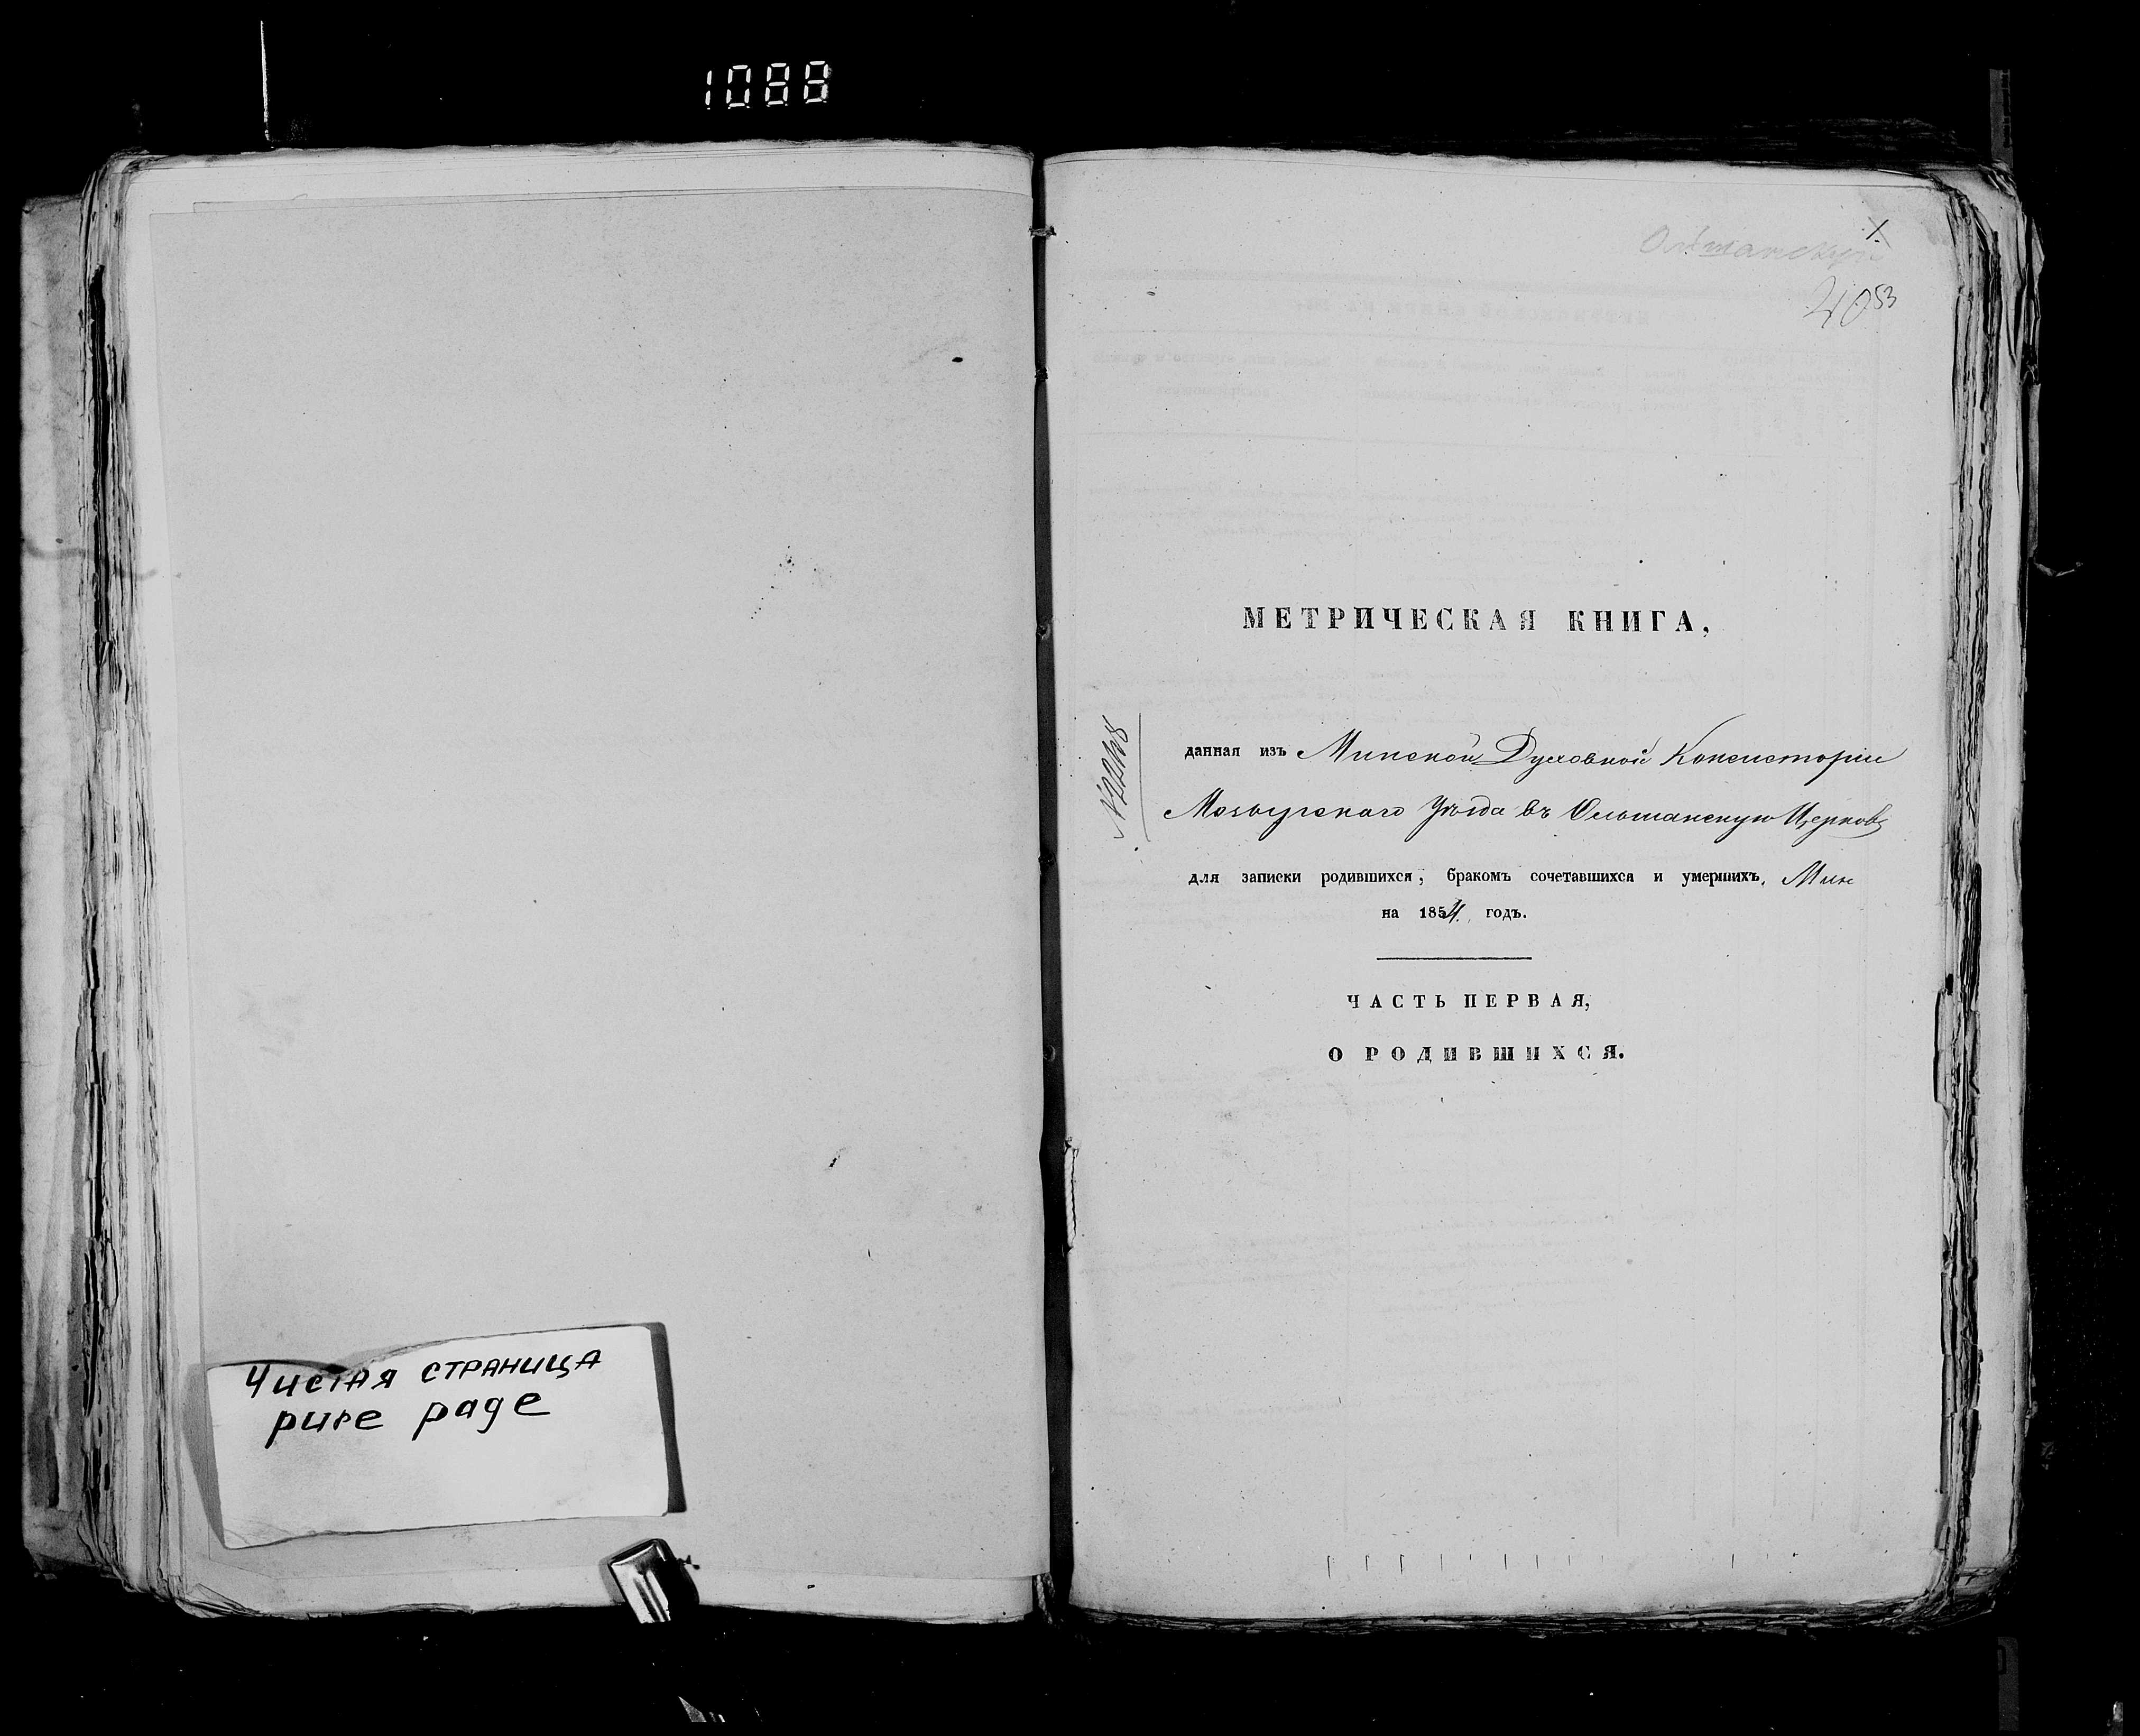 1088
Чистая страница
pure page
Ольшанскую
1.
4053
МЕТРИЧЕСКАЯ КНИГА,
№ 2248
данная изъ Минской Духовной Консисторіи
Мозырскаго Уѣзда въ Ольшанскую Церковь
для записки родившихся, бракомъ сочетавшихся и умершихъ,
на 1854 годъ.
ЧАСТЬ ПЕРВАЯ,
О РОДИВШИХСЯ.